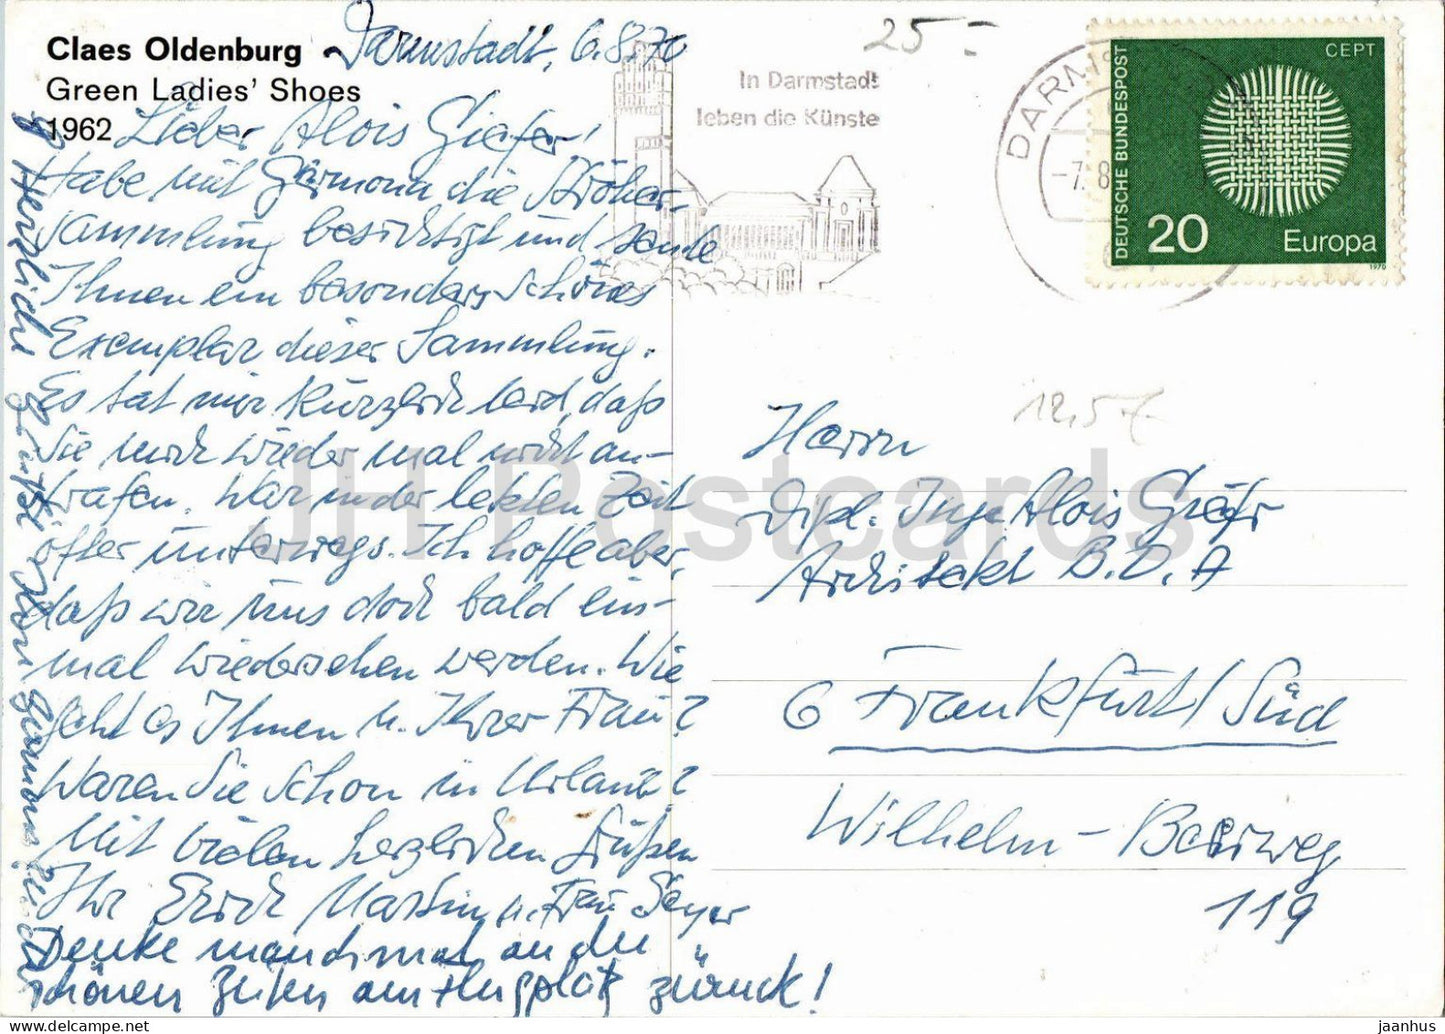 Claes Oldenburg
Green Ladies' Shoes
1962
Darmstadt, 6.8.70
Lieber Alois Giefer!
Habe mit Germona die Ströher-
sammlung besichtigt und sende
Ihnen ein besonders schönes
Exemplar dieser Sammlung.
Es tat mir kürzlich leid, daß
Sie mich wieder mal nicht an-
trafen. War in der letzten Zeit
öfter unterwegs. Ich hoffe aber,
daß wir uns doch bald ein-
mal wiedersehen werden. Wie
geht es Ihnen u. Ihrer Frau?
Waren Sie schon in Urlaub?
Mit vielen herzlichen Grüßen
Ihr Erich Martin u. Frau
Denke manchmal an die
schönen Zeiten am Flugplatz zurück!
Herzliche Grüße
25.-
In Darmstadt
leben die Künste
DARMS
-7.8
DEUTSCHE BUNDESPOST
CEPT
20
Europa
1970
12,5
Herrn
Dipl. Ing. Alois Giefer
Architekt B.D.A
6 Frankfurt/Süd
Wilhelm-Beerweg
119
JH Postcards
jaanhus / eu.delcampe.net